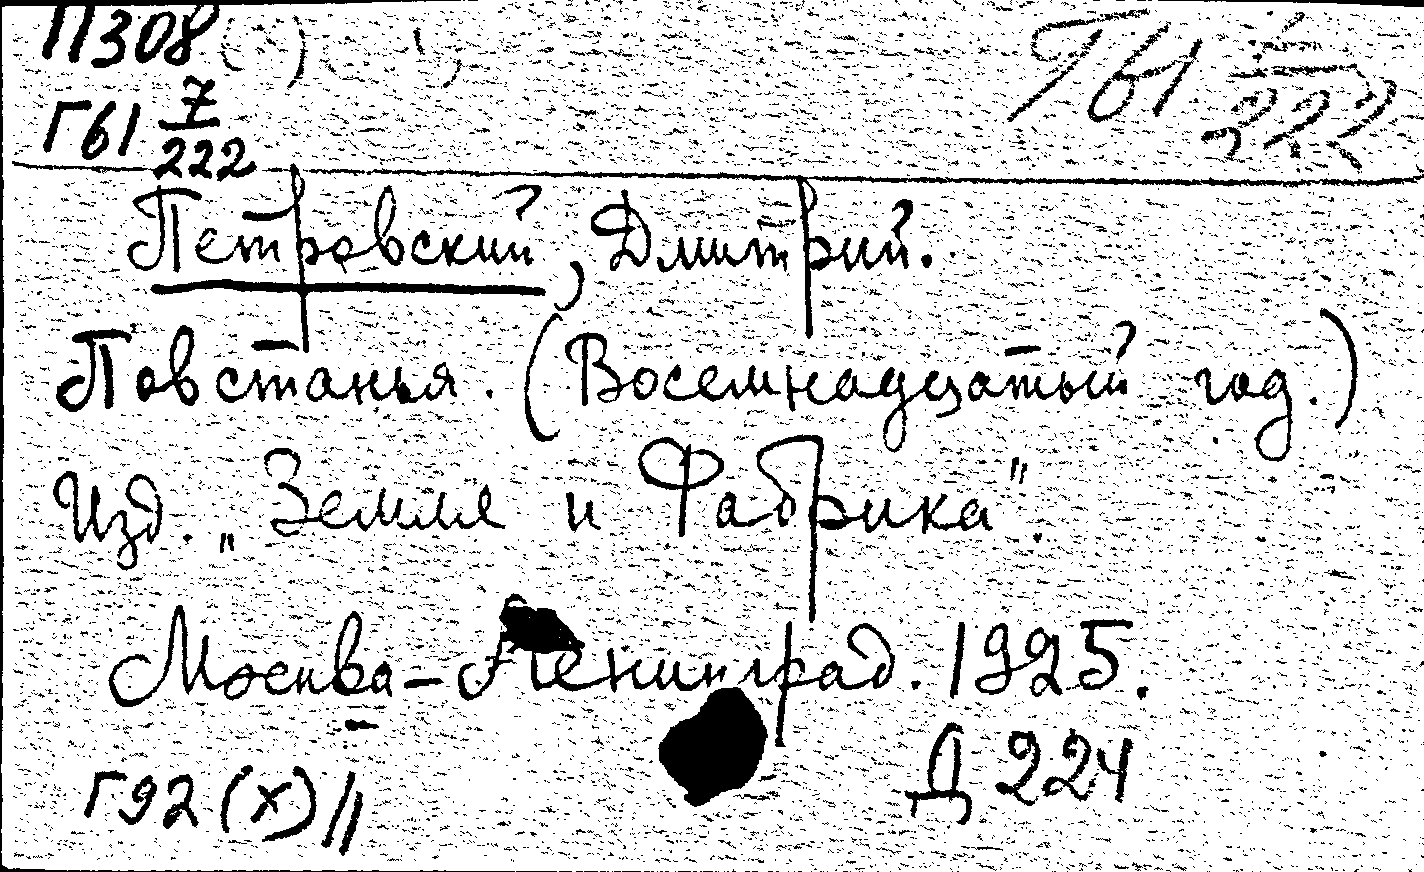 П308
Г61 7/222
Г61 /222
Петровский, Дмитрий.
Повстанья. (Восемнадцатый год.)
Изд. „Земля и Фабрика".
Москва-Ленинград. 1925.
Д 224
Г92(х)//